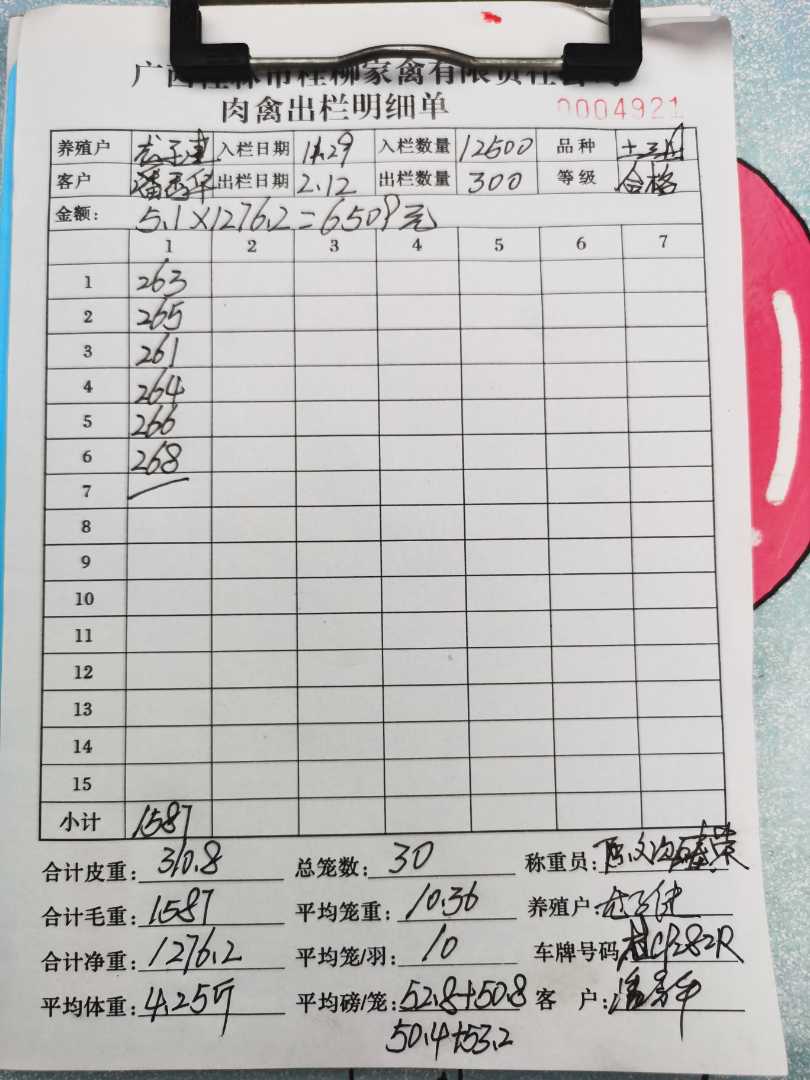 广西桂林市桂柳家禽有限责任公司
肉禽出栏明细单 0004921
养殖户 入栏日期 11.29 入栏数量 12500 品种
客户 出栏日期 2.12 出栏数量 300 等级 合格
金额: 5.1×1276.2=6509元
1 2 3 4 5 6 7
1 263
2 265
3 261
4 264
5 266
6 268
7
8
9
10
11
12
13
14
15
小计 1587
合计皮重: 310.8 总笼数: 30 称重员:
合计毛重: 1587 平均笼重: 10.36 养殖户:
合计净重: 1276.2 平均笼/羽: 10 车牌号码
平均体重: 4.25斤 平均磅/笼: 52.8+50.8 客 户:
50.4+53.2